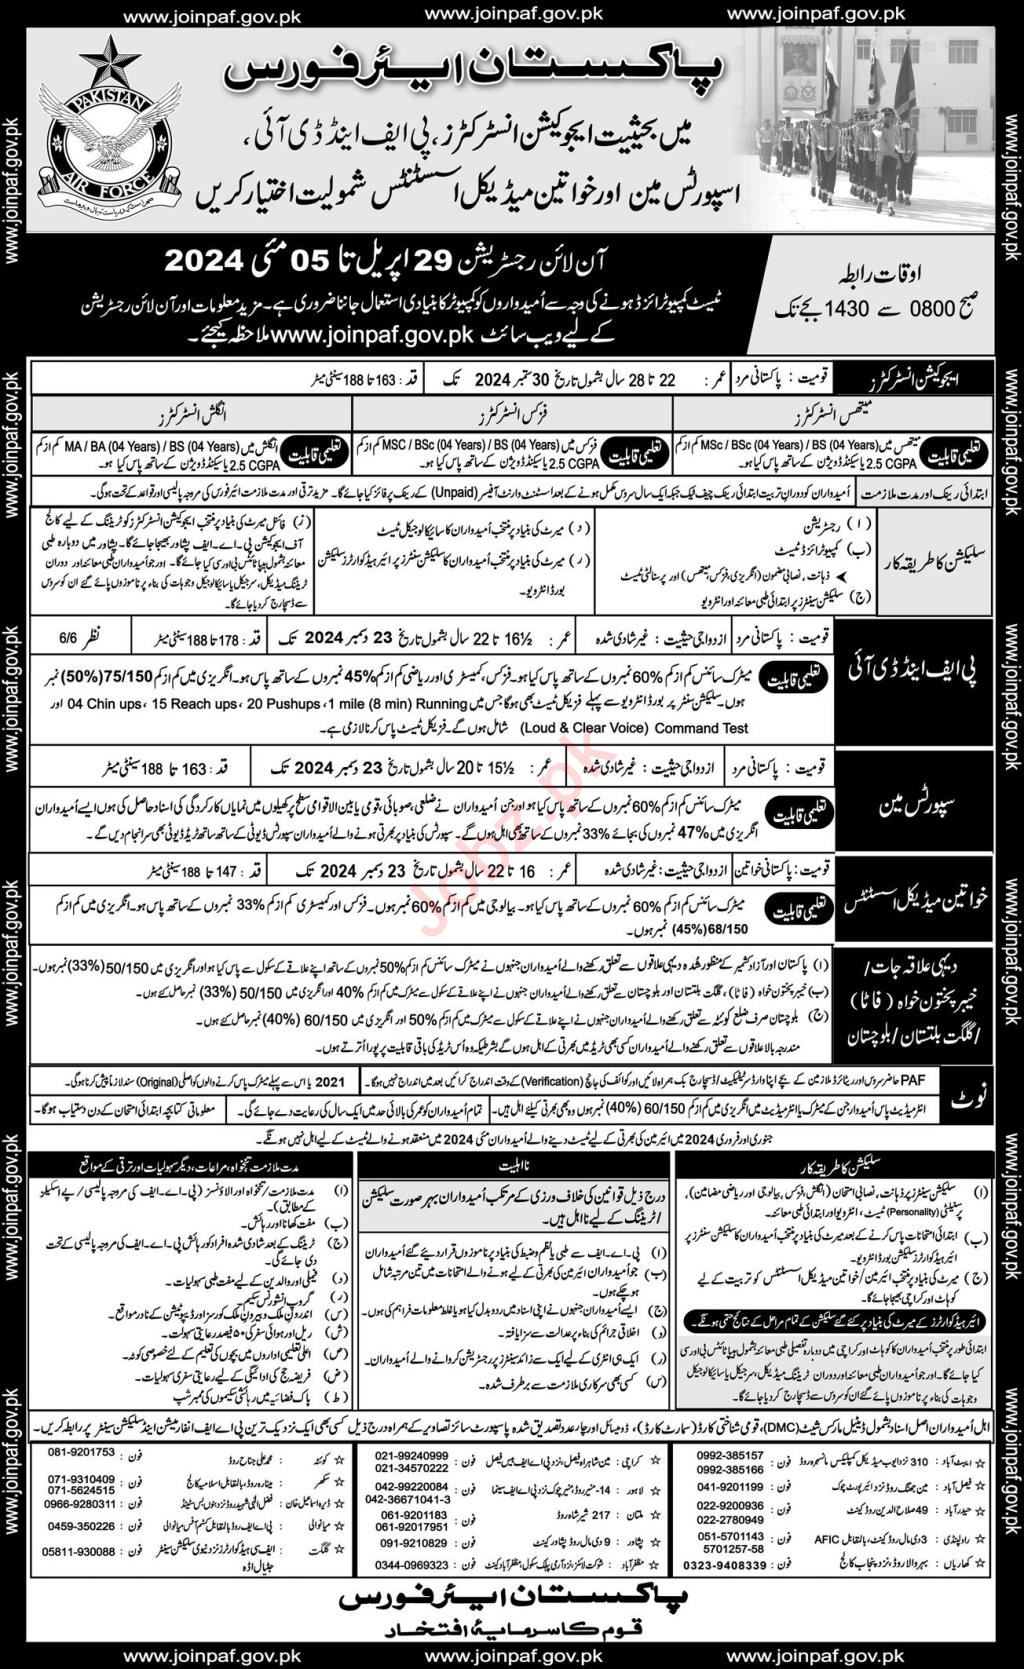 www.joinpaf.gov.pk www.joinpaf.gov.pk www.joinpaf.gov.pk
PAKISTAN AIR FORCE
پاکستان ایئر فورس
میں بحیثیت ایجوکیشن انسٹرکٹرز، پی ایف اینڈ ڈی آئی،
اسپورٹس مین اور خواتین میڈیکل اسسٹنٹس شمولیت اختیار کریں
آن لائن رجسٹریشن 29 اپریل تا 05 مئی 2024
ٹیسٹ کمپیوٹرائزڈ ہونے کی وجہ سے اُمیدواروں کو کمپیوٹر کا بنیادی استعمال جاننا ضروری ہے۔ مزید معلومات اور آن لائن رجسٹریشن
کے لیے ویب سائٹ www.joinpaf.gov.pk ملاحظہ کیجئے۔
اوقات رابطہ
صبح 0800 سے 1430 بجے تک
ایجوکیشن انسٹرکٹرز
قومیت: پاکستانی مرد
عمر: 22 تا 28 سال بشمول تاریخ 30 ستمبر 2024 تک
قد: 163 تا 188 سینٹی میٹر
میتھس انسٹرکٹرز
فزکس انسٹرکٹرز
انگلش انسٹرکٹرز
تعلیمی قابلیت
میتھس میں MSc / BSc (04 Years) / BS (04 Years) کم از کم
2.5 CGPA یا سیکنڈ ڈویژن کے ساتھ پاس کیا ہو۔
تعلیمی قابلیت
فزکس میں MSC / BSc (04 Years) / BS (04 Years) کم از کم
2.5 CGPA یا سیکنڈ ڈویژن کے ساتھ پاس کیا ہو۔
تعلیمی قابلیت
انگلش میں MA / BA (04 Years) / BS (04 Years) کم از کم
2.5 CGPA یا سیکنڈ ڈویژن کے ساتھ پاس کیا ہو۔
ابتدائی رینک اور مدت ملازمت
اُمیدواران کو دوران تربیت ابتدائی رینک چیف ٹیک جبکہ ایک سال سروس مکمل ہونے کے بعد اسسٹنٹ وارنٹ آفیسر (Unpaid) کے رینک پر فائز کیا جائے گا۔ مزید ترقی اور مدت ملازمت ائیر فورس کی مروجہ پالیسی اور قواعد کے تحت ہوگی۔
سلیکشن کا طریقہ کار
(ا) رجسٹریشن
(ب) کمپیوٹرائزڈ ٹیسٹ
ذہانت، نصابی مضمون (انگریزی، فزکس، میتھس) اور پرسنالٹی ٹیسٹ
(ج) سلیکشن سینٹرز پر ابتدائی طبی معائنہ اور انٹرویو
(د) میرٹ کی بنیاد پر منتخب اُمیدواران کا سائیکالوجیکل ٹیسٹ
(ر) میرٹ کی بنیاد پر منتخب اُمیدواران کا سلیکشن سنٹرز پر ائیر ہیڈ کوارٹرز سلیکشن
بورڈ انٹرویو۔
(ز) فائنل میرٹ کی بنیاد پر منتخب ایجوکیشن انسٹرکٹرز کو ٹریننگ کے لیے کالج
آف ایجوکیشن پی۔اے۔ایف پشاور بھیجا جائے گا۔ پشاور میں دوبارہ طبی
معائنہ بشمول ہیپاٹائٹس بی اور سی کیا جائے گا۔ اور جو اُمیدواران طبی معائنہ اور دوران
ٹریننگ میڈیکل، سرجیکل یا سائیکالوجیکل وجوہات کی بناء پر ناموزوں پائے گئے ان کو سروس
سے ڈسچارج کر دیا جائے گا۔
پی ایف اینڈ ڈی آئی
قومیت: پاکستانی مرد
ازدواجی حیثیت: غیر شادی شدہ
عمر: 16½ تا 22 سال بشمول تاریخ 23 دسمبر 2024 تک
قد: 178 تا 188 سینٹی میٹر
نظر 6/6
تعلیمی قابلیت
میٹرک سائنس کم از کم 60% نمبروں کے ساتھ پاس کیا ہو۔ فزکس، کیمسٹری اور ریاضی کم از کم 45% نمبروں کے ساتھ پاس ہو۔ انگریزی میں کم از کم 75/150 (50%) نمبر
ہوں۔ سلیکشن سنٹر پر بورڈ انٹرویو سے پہلے فزیکل ٹیسٹ بھی ہوگا جس میں 04 Chin ups، 15 Reach ups، 20 Pushups، 1 mile (8 min) Running اور
Command Test (Loud & Clear Voice) شامل ہوں گے۔ فزیکل ٹیسٹ پاس کرنا لازمی ہے۔
سپورٹس مین
قومیت: پاکستانی مرد
ازدواجی حیثیت: غیر شادی شدہ
عمر: 15½ تا 20 سال بشمول تاریخ 23 دسمبر 2024 تک
قد: 163 تا 188 سینٹی میٹر
تعلیمی قابلیت
میٹرک سائنس کم از کم 60% نمبروں کے ساتھ پاس کیا ہو اور جن اُمیدواران نے ضلعی، صوبائی، قومی یا بین الاقوامی سطح پر کھیلوں میں نمایاں کارکردگی کی اسناد حاصل کی ہوں ایسے اُمیدواران
انگریزی میں 47% نمبروں کی بجائے 33% نمبروں کے ساتھ بھی اہل ہوں گے۔ سپورٹس کی بنیاد پر بھرتی ہونے والے اُمیدواران سپورٹس ڈیوٹی کے ساتھ ساتھ ٹریڈ ڈیوٹی بھی سرانجام دیں گے۔
خواتین میڈیکل اسسٹنٹس
قومیت: پاکستانی خواتین
ازدواجی حیثیت: غیر شادی شدہ
عمر: 16 تا 22 سال بشمول تاریخ 23 دسمبر 2024 تک
قد: 147 تا 188 سینٹی میٹر
تعلیمی قابلیت
میٹرک سائنس کم از کم 60% نمبروں کے ساتھ پاس کیا ہو۔ بیالوجی میں کم از کم 60% نمبر ہوں۔ فزکس اور کیمسٹری کم از کم 33% نمبروں کے ساتھ پاس ہو۔ انگریزی میں کم از کم
68/150 (45%) نمبر ہوں۔
دیہی علاقہ جات/
خیبر پختون خواہ (فاٹا)
/گلگت بلتستان/بلوچستان
(ا) پاکستان اور آزاد کشمیر کے منظور شدہ دیہی علاقوں سے تعلق رکھنے والے اُمیدواران جنہوں نے میٹرک سائنس کم از کم 50% نمبروں کے ساتھ اپنے علاقے کے سکول سے پاس کیا ہو اور انگریزی میں 50/150 (33%) نمبر ہوں۔
(ب) خیبر پختون خواہ (فاٹا)، گلگت بلتستان اور بلوچستان سے تعلق رکھنے والے اُمیدواران جنہوں نے اپنے علاقے کے سکول سے میٹرک میں کم از کم 40% اور انگریزی میں 50/150 (33%) نمبر حاصل کئے ہوں۔
(ج) بلوچستان صرف ضلع کوئٹہ سے تعلق رکھنے والے اُمیدواران جنہوں نے اپنے علاقے کے سکول سے میٹرک میں کم از کم 50% اور انگریزی میں 60/150 (40%) نمبر حاصل کئے ہوں۔
مندرجہ بالا علاقوں سے تعلق رکھنے والے اُمیدواران کسی بھی ٹریڈ میں بھرتی کے اہل ہوں گے بشرطیکہ وہ اُس ٹریڈ کی باقی قابلیت پر پورا اُترتے ہوں۔
نوٹ
PAF حاضر سروس اور ریٹائرڈ ملازمین کے بچے اپنا وارڈ سرٹیفکیٹ/ڈسچارج بک ہمراہ لائیں اور کوائف کی جانچ (Verification) کے وقت اندراج کرائیں بعد میں اندراج نہیں ہوگا۔
2021 یا اس سے پہلے میٹرک پاس کرنے والوں کو اصلی (Original) سند لازماً پیش کرنا ہوگی۔
انٹرمیڈیٹ پاس اُمیدوار جن کے میٹرک یا انٹرمیڈیٹ میں انگریزی میں کم از کم 60/150 (40%) نمبر ہوں وہ بھی بھرتی کیلئے اہل ہیں۔
تمام اُمیدواران کو عمر کی بالائی حد میں ایک سال کی رعایت دے جائے گی۔
معلوماتی کتابچہ ابتدائی امتحان کے دن دستیاب ہوگا۔
جنوری اور فروری 2024 میں ائیر مین کی بھرتی کے لیے ٹیسٹ دینے والے اُمیدواران مئی 2024 میں منعقد ہونے والے ٹیسٹ کے لیے اہل نہیں ہونگے۔
سلیکشن کا طریقہ کار
(ا) سلیکشن سینٹرز پر ذہانت، نصابی امتحان (انگلش، فزکس، بیالوجی اور ریاضی مضامین)،
پرسنیلٹی (Personality) ٹیسٹ، انٹرویو اور ابتدائی طبی معائنہ۔
(ب) ابتدائی امتحانات پاس کرنے کے بعد میرٹ کی بنیاد پر منتخب اُمیدواران کا سلیکشن سنٹرز پر
ائیر ہیڈ کوارٹرز سلیکشن بورڈ انٹرویو۔
(ج) میرٹ کی بنیاد پر منتخب ائیر مین/خواتین میڈیکل اسسٹنٹس کو تربیت کے لیے
کوہاٹ اور کراچی بھیجا جائے گا۔
ائیر ہیڈ کوارٹرز کے میرٹ کی بنیاد پر کئے گئے سلیکشن کے تمام مراحل کے نتائج حتمی ہونگے۔
ابتدائی طور پر منتخب اُمیدواران کا کوہاٹ اور کراچی میں دوبارہ تفصیلی طبی معائنہ بشمول ہیپاٹائٹس بی اور سی
کیا جائے گا۔ اور جو اُمیدواران طبی معائنہ اور دوران ٹریننگ میڈیکل، سرجیکل یا سائیکالوجیکل
وجوہات کی بناء پر ناموزوں پائے گئے ان کو سروس سے ڈسچارج کر دیا جائے گا۔
نااہلیت
درج ذیل قوانین کی خلاف ورزی کے مرتکب اُمیدواران بہر صورت سلیکشن
/ٹریننگ کے لیے نااہل ہیں۔
(ا) پی۔اے۔ایف سے طبی یا نظم و ضبط کی بنیاد پر ناموزوں قرار دیئے گئے اُمیدواران
(ب) جو اُمیدواران ائیر مین کی بھرتی کے لیے ہونے والے امتحانات میں تین مرتبہ شامل
ہو چکے ہوں۔
(ج) ایسے اُمیدواران جنہوں نے اپنی اسناد میں ردوبدل کیا ہو یا غلط معلومات فراہم کی ہوں۔
(د) اخلاقی جرائم کی بناء پر عدالت سے سزا یافتہ۔
(ر) ایک ہی انٹری کے لیے ایک سے زائد سینٹرز پر رجسٹریشن کروانے والے اُمیدواران۔
(س) کسی بھی سرکاری ملازمت سے برطرف شدہ۔
مدت ملازمت، تنخواہ، مراعات، دیگر سہولیات اور ترقی کے مواقع
(ا) مدت ملازمت/تنخواہ اور الاؤنسز (پی۔اے۔ایف کی مروجہ پالیسی/پے اسکیلز
کے مطابق)۔
(ب) مفت کھانا اور رہائش۔
(ج) ٹریننگ کے بعد شادی شدہ افراد کو رہائش پی۔اے۔ایف کی مروجہ پالیسی کے تحت
دی جائے گی۔
(د) فیملی اور والدین کے لیے مفت طبی سہولیات۔
(ر) گروپ انشورنس سکیم۔
(س) اندرون ملک و بیرون ملک کورسز اور ڈیپوٹیشن کے نادر مواقع۔
(ش) ریل اور ہوائی سفر کی ۵۰ فیصد رعایتی سہولت۔
(ص) اعلی تعلیمی اداروں میں بچوں کی تعلیم کے لئے خصوصی کوٹہ۔
(ض) فریضہ حج کی ادائیگی کے لیے رعایتی سفری سہولیات۔
(ط) پاک فضائیہ میں رہائشی سکیموں کی ممبر شپ
اہل اُمیدواران اصل اسناد بشمول ڈیٹیل مارکس شیٹ (DMC)، قومی شناختی کارڈ (سمارٹ کارڈ)، ڈومیسائل اور چار عدد تصدیق شدہ پاسپورٹ سائز تصاویر کے ہمراہ درج ذیل کسی بھی ایک نزدیک ترین پی اے ایف انفارمیشن اینڈ سلیکشن سینٹر پر رابطہ کریں۔
☆ ایبٹ آباد: 310 نزد ایوب میڈیکل کمپلیکس مانسہرہ روڈ فون: 0992-385157 0992-385166
☆ فیصل آباد: مین جھنگ روڈ نزد ائیر پورٹ چوک فون: 041-9201199
☆ حیدرآباد: 49 صلاح الدین روڈ کینٹ فون: 022-9200936 022-2780949
☆ راولپنڈی: 3 دی مال روڈ کینٹ، بالمقابل AFIC فون: 051-5701143 5701257-58
☆ کھاریاں: بہر والا روڈ، نزد پنجاب کالج فون: 0323-9408339
☆ کراچی: مین شاہراہ فیصل، نزد پی اے ایف بیس فیصل فون: 021-99240999 021-34570222
☆ لاہور: 14- منیر روڈ منیر چوک نزد پی اے ایف سینما فون: 042-99220084 042-36671041-3
☆ ملتان: 217 شیر شاہ روڈ فون: 061-9201183 061-92017951
☆ پشاور: 9 دی مال روڈ پشاور کینٹ فون: 091-9210829
☆ مظفر آباد: شوکت لائنز، نزد آرمی پبلک سکول، مظفرآباد کینٹ فون: 0344-0969323
☆ کوئٹہ: محمد علی جناح روڈ فون: 081-9201753
☆ سکھر: مینارہ روڈ، بالمقابل اسلامیہ کالج فون: 071-9310409 071-5624515
☆ ڈیرہ اسماعیل خان: فضل الہی شہید روڈ نزد بنوں بس سٹینڈ فون: 0966-9280311
☆ میانوالی: پی اے ایف روڈ بالمقابل کسٹم آفس میانوالی فون: 0459-350226
☆ گلگت: ایف سی ہیڈ کوارٹرز نزد نیوی سلیکشن سینٹر جٹیال اڈہ فون: 05811-930088
پاکستان ایئر فورس
قوم کا سرمایۂ افتخار
www.joinpaf.gov.pk www.joinpaf.gov.pk www.joinpaf.gov.pk
Jobz.pk